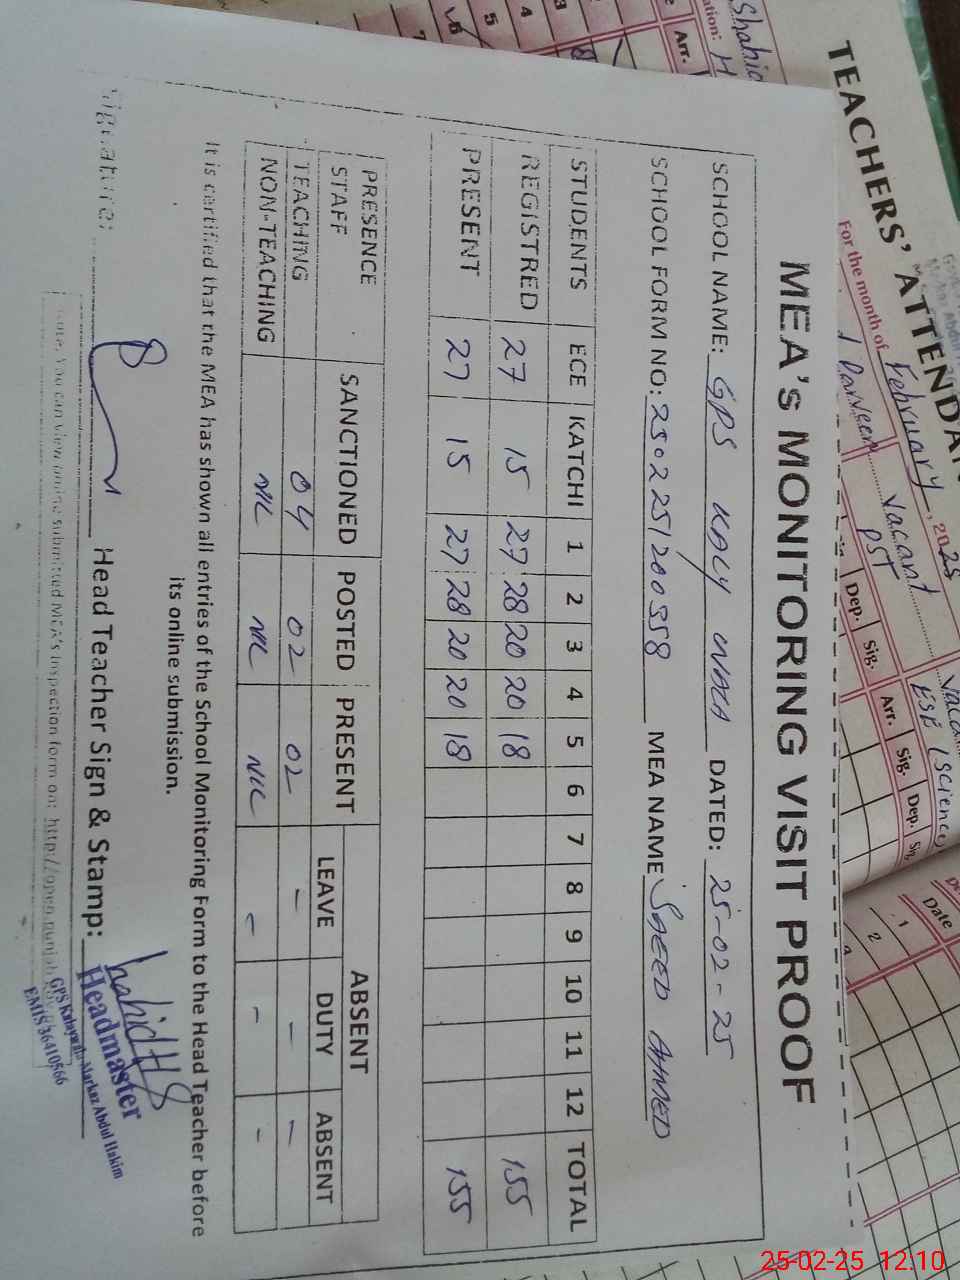 TEACHERS' ATTENDA
For the month of February, 2025
Vacant
PST
Arr.
Dep. Sig. Arr. Sig. Dep. Sig.
Date
1
2
3
4
5
MEA's MONITORING VISIT PROOF
SCHOOL NAME: GPS KALY WALA DATED: 25-02-25
SCHOOL FORM NO: 2502251200358 MEA NAME SAEED AHMED
STUDENTS ECE KATCHI 1 2 3 4 5 6 7 8 9 10 11 12 TOTAL
REGISTRED 27 15 27 28 20 20 18 155
PRESENT 27 15 27 28 20 20 18 155
PRESENCE STAFF SANCTIONED POSTED PRESENT ABSENT
LEAVE DUTY ABSENT
TEACHING 04 02 02 - - -
NON-TEACHING NIL NIL NIL - - -
It is certified that the MEA has shown all entries of the School Monitoring Form to the Head Teacher before
its online submission.
Signature: Head Teacher Sign & Stamp:
Headmaster
Markaz Abdul Hakim
EMIS 36410566
Note: You can view online submitted MEA's Inspection form on: http://open.punjab.gov.pk
25-02-25 12.10